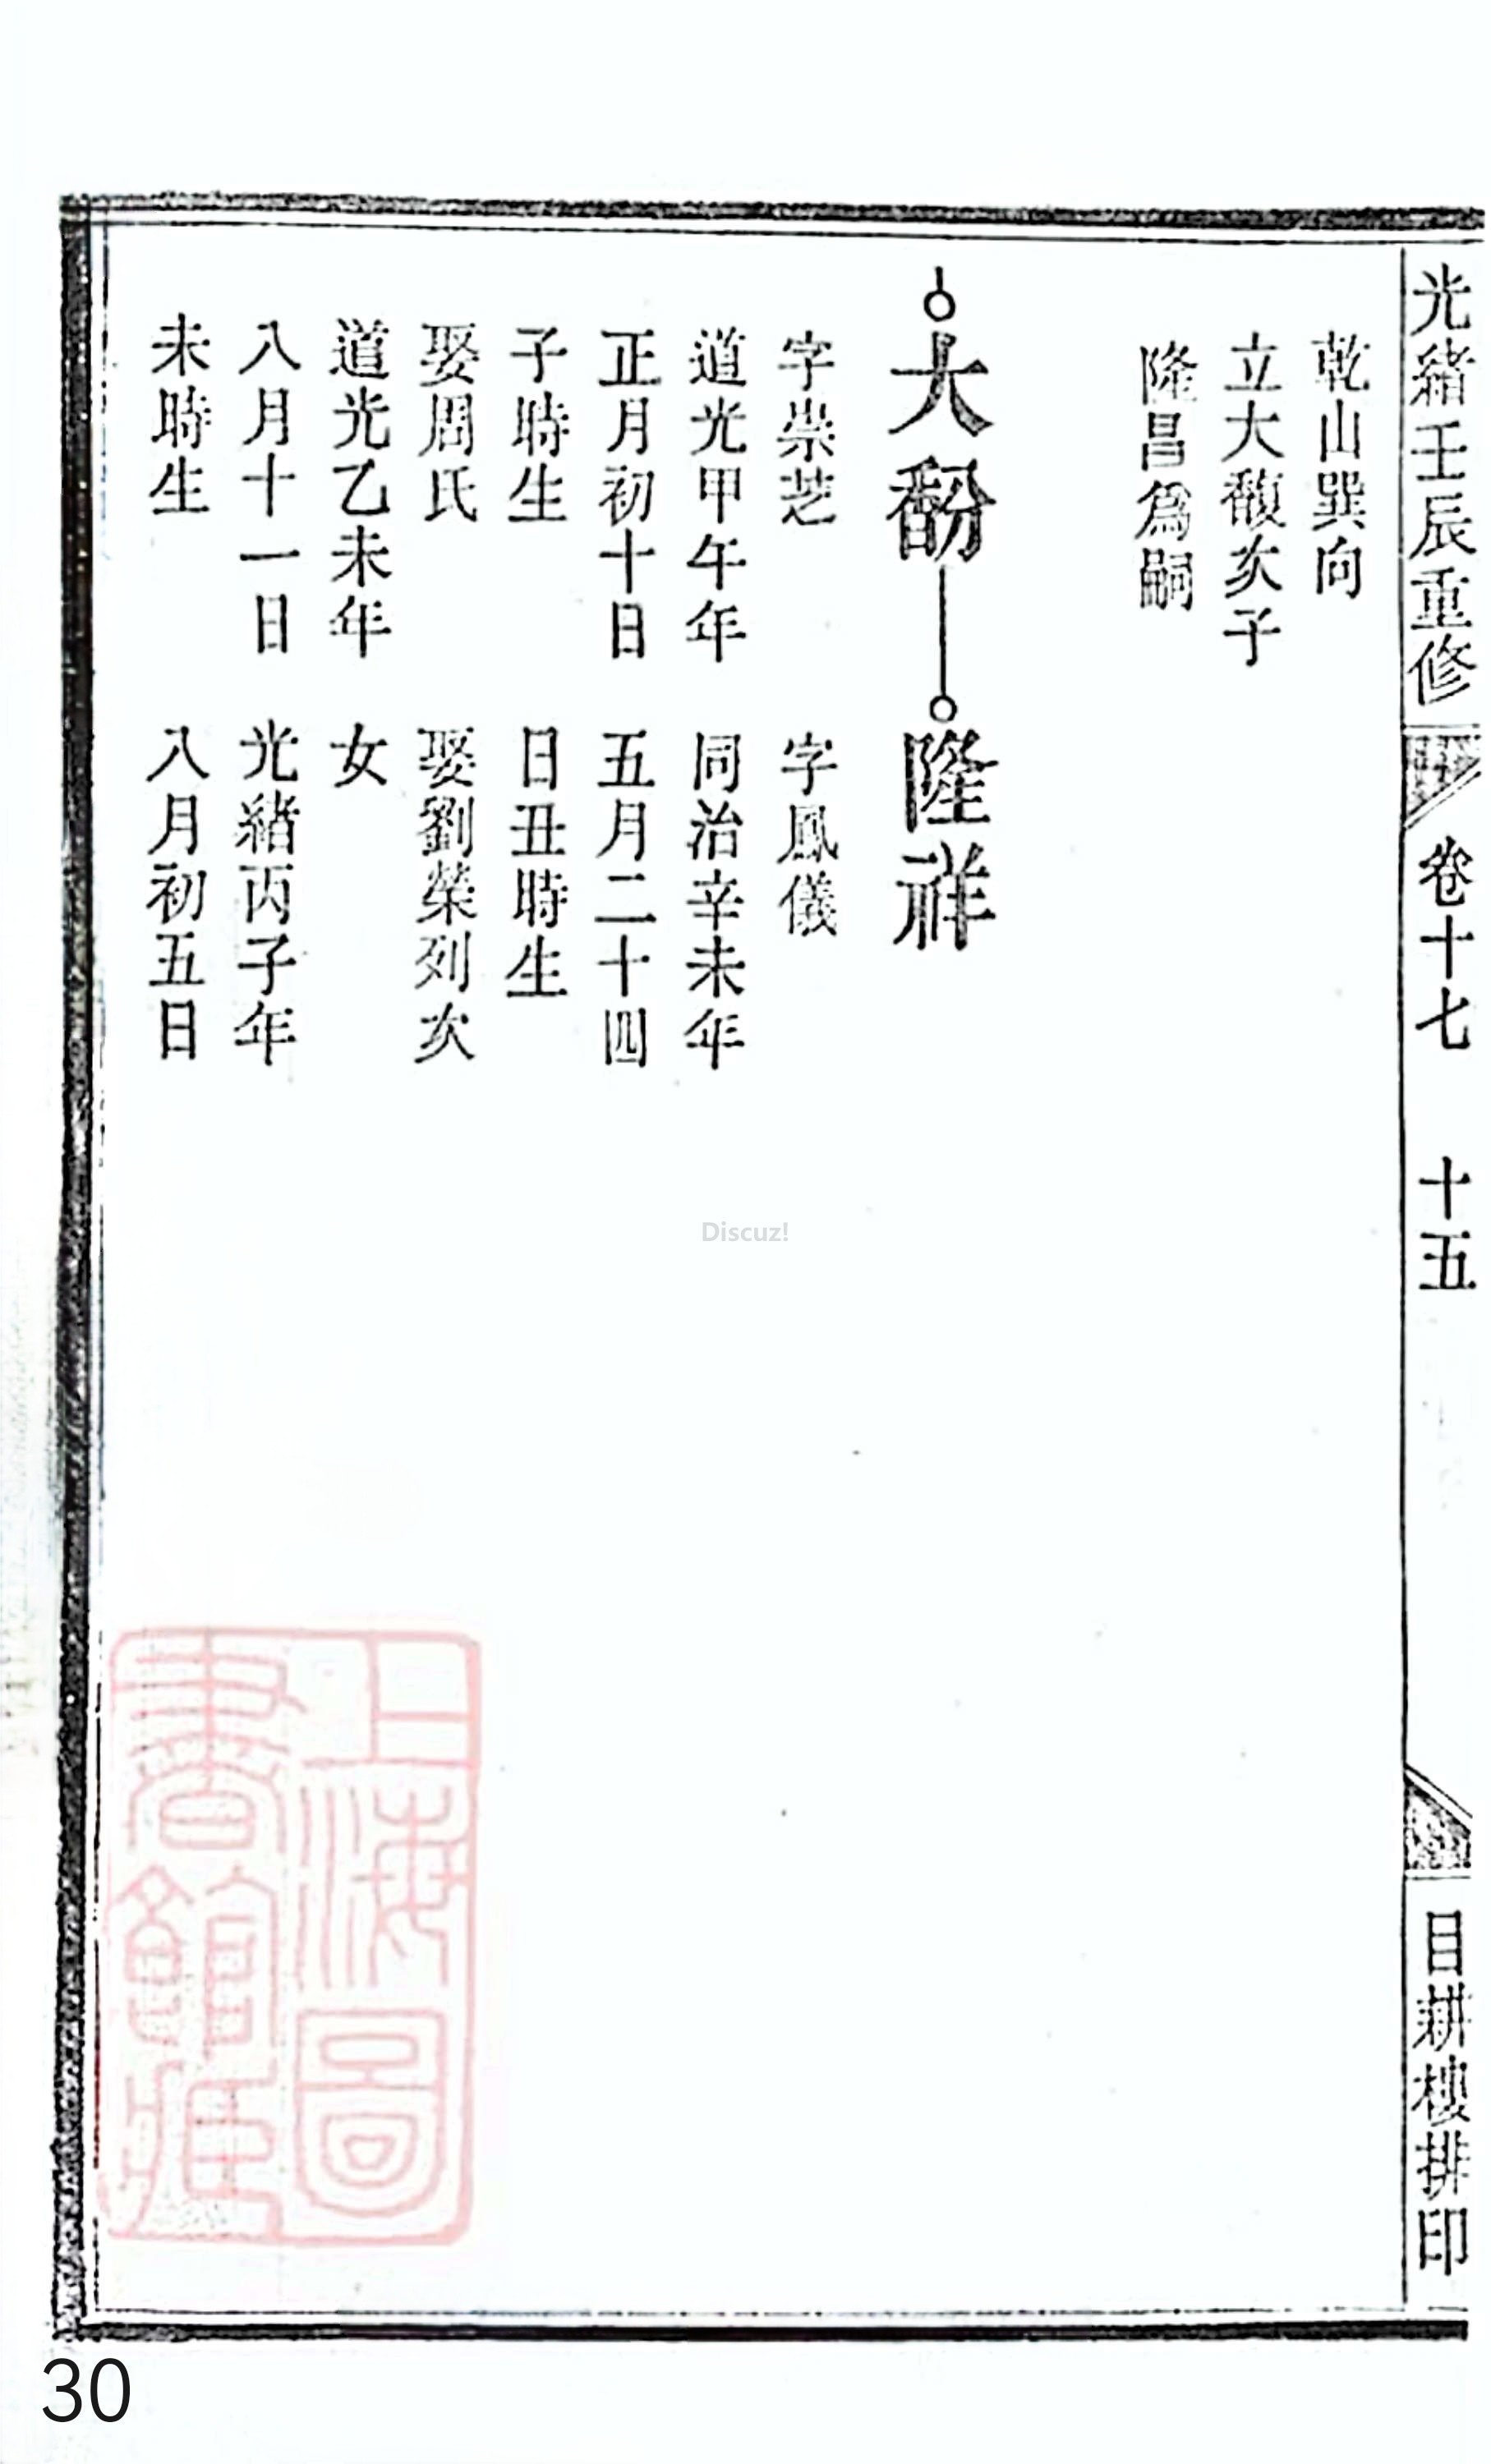 光緒壬辰重修
卷十七
十五
目耕樓排印
乾山巽向
立大馥次子
隆昌爲嗣
大馚
隆祥
字崇芝
道光甲午年
正月初十日
子時生
娶周氏
道光乙未年
八月十一日
未時生
字鳳儀
同治辛未年
五月二十四
日丑時生
娶劉榮列次
女
光緒丙子年
八月初五日
上海圖
書館藏
Discuz!
30